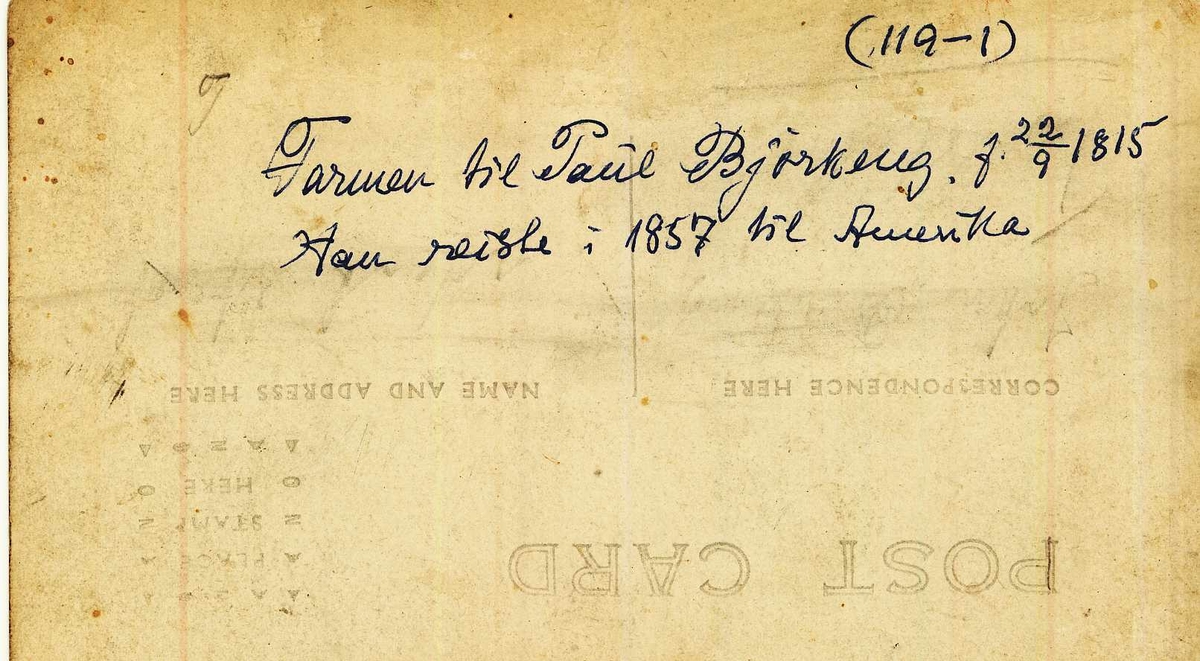 (119-1)
Farmen til Paul Björkeng. f. 22/9 1815
Han reiste i 1857 til Amerika
CORRESPONDENCE HERE
NAME AND ADDRESS HERE
POST CARD
PLACE
STAMP
HERE